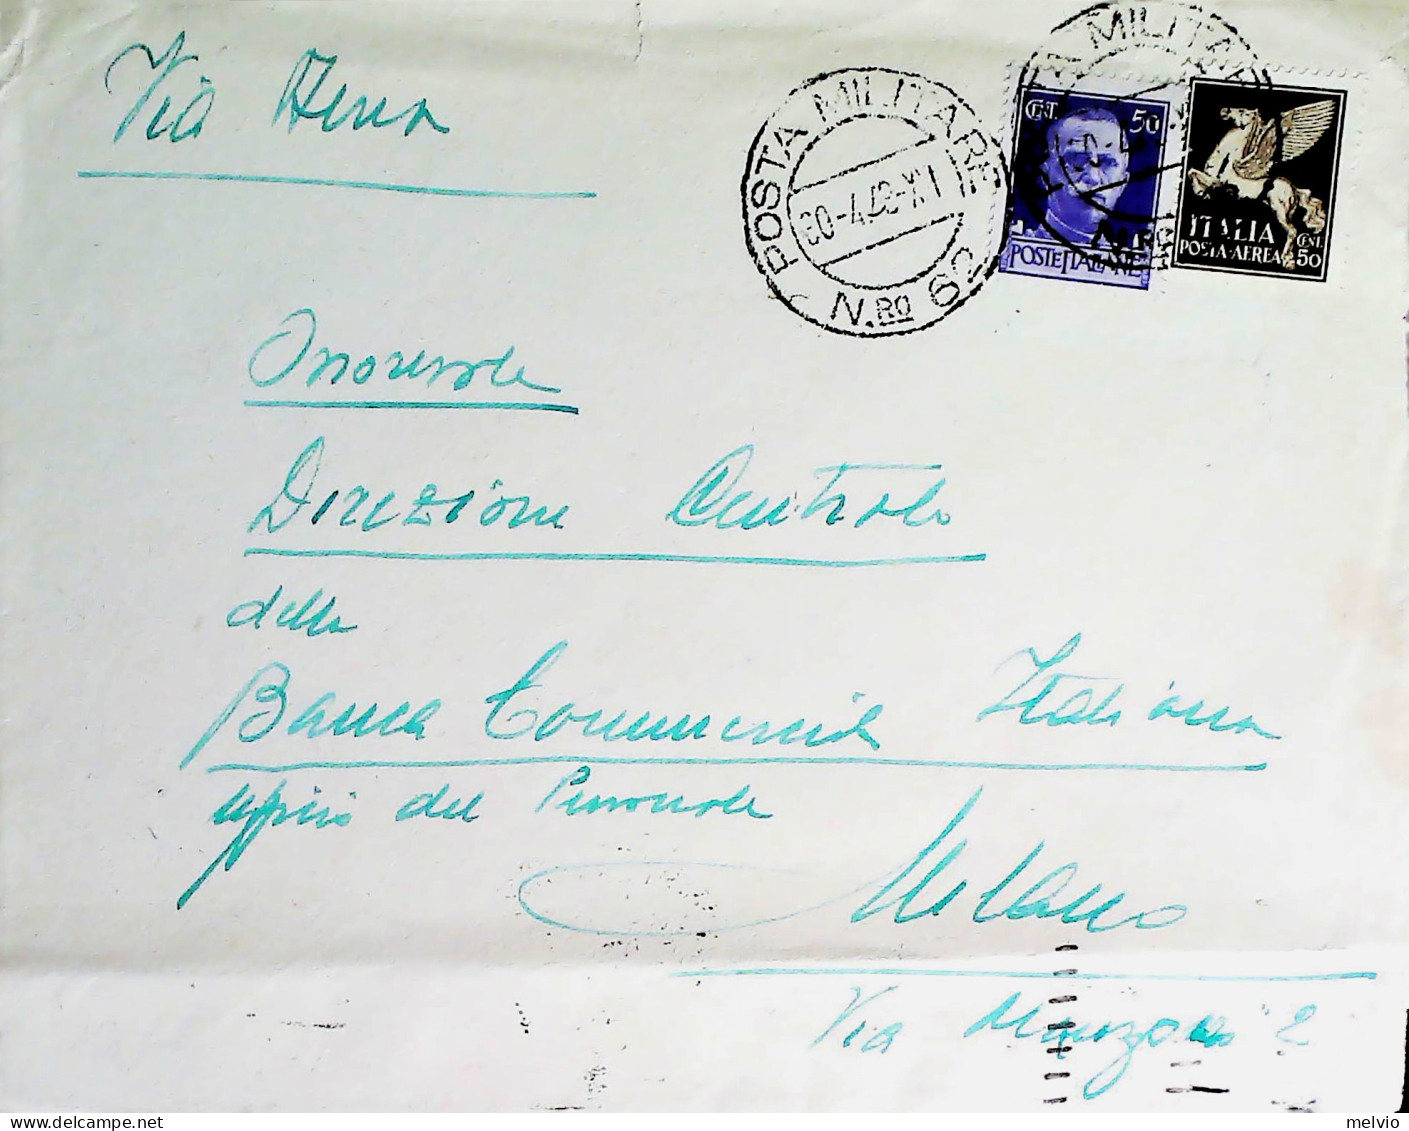 Via Aerea
POSTA MILITARE
N.RO 62
POSTA MILITARE
N.RO
CENT. 50
POSTE ITALIANE
ITALIA
POSTA-AEREA
CENT. 50
Onorevole
Direzione Centrale
della
Banca Commerciale Italiana
Ufficio del Personale
Milano
Via Manzoni 2
melvio